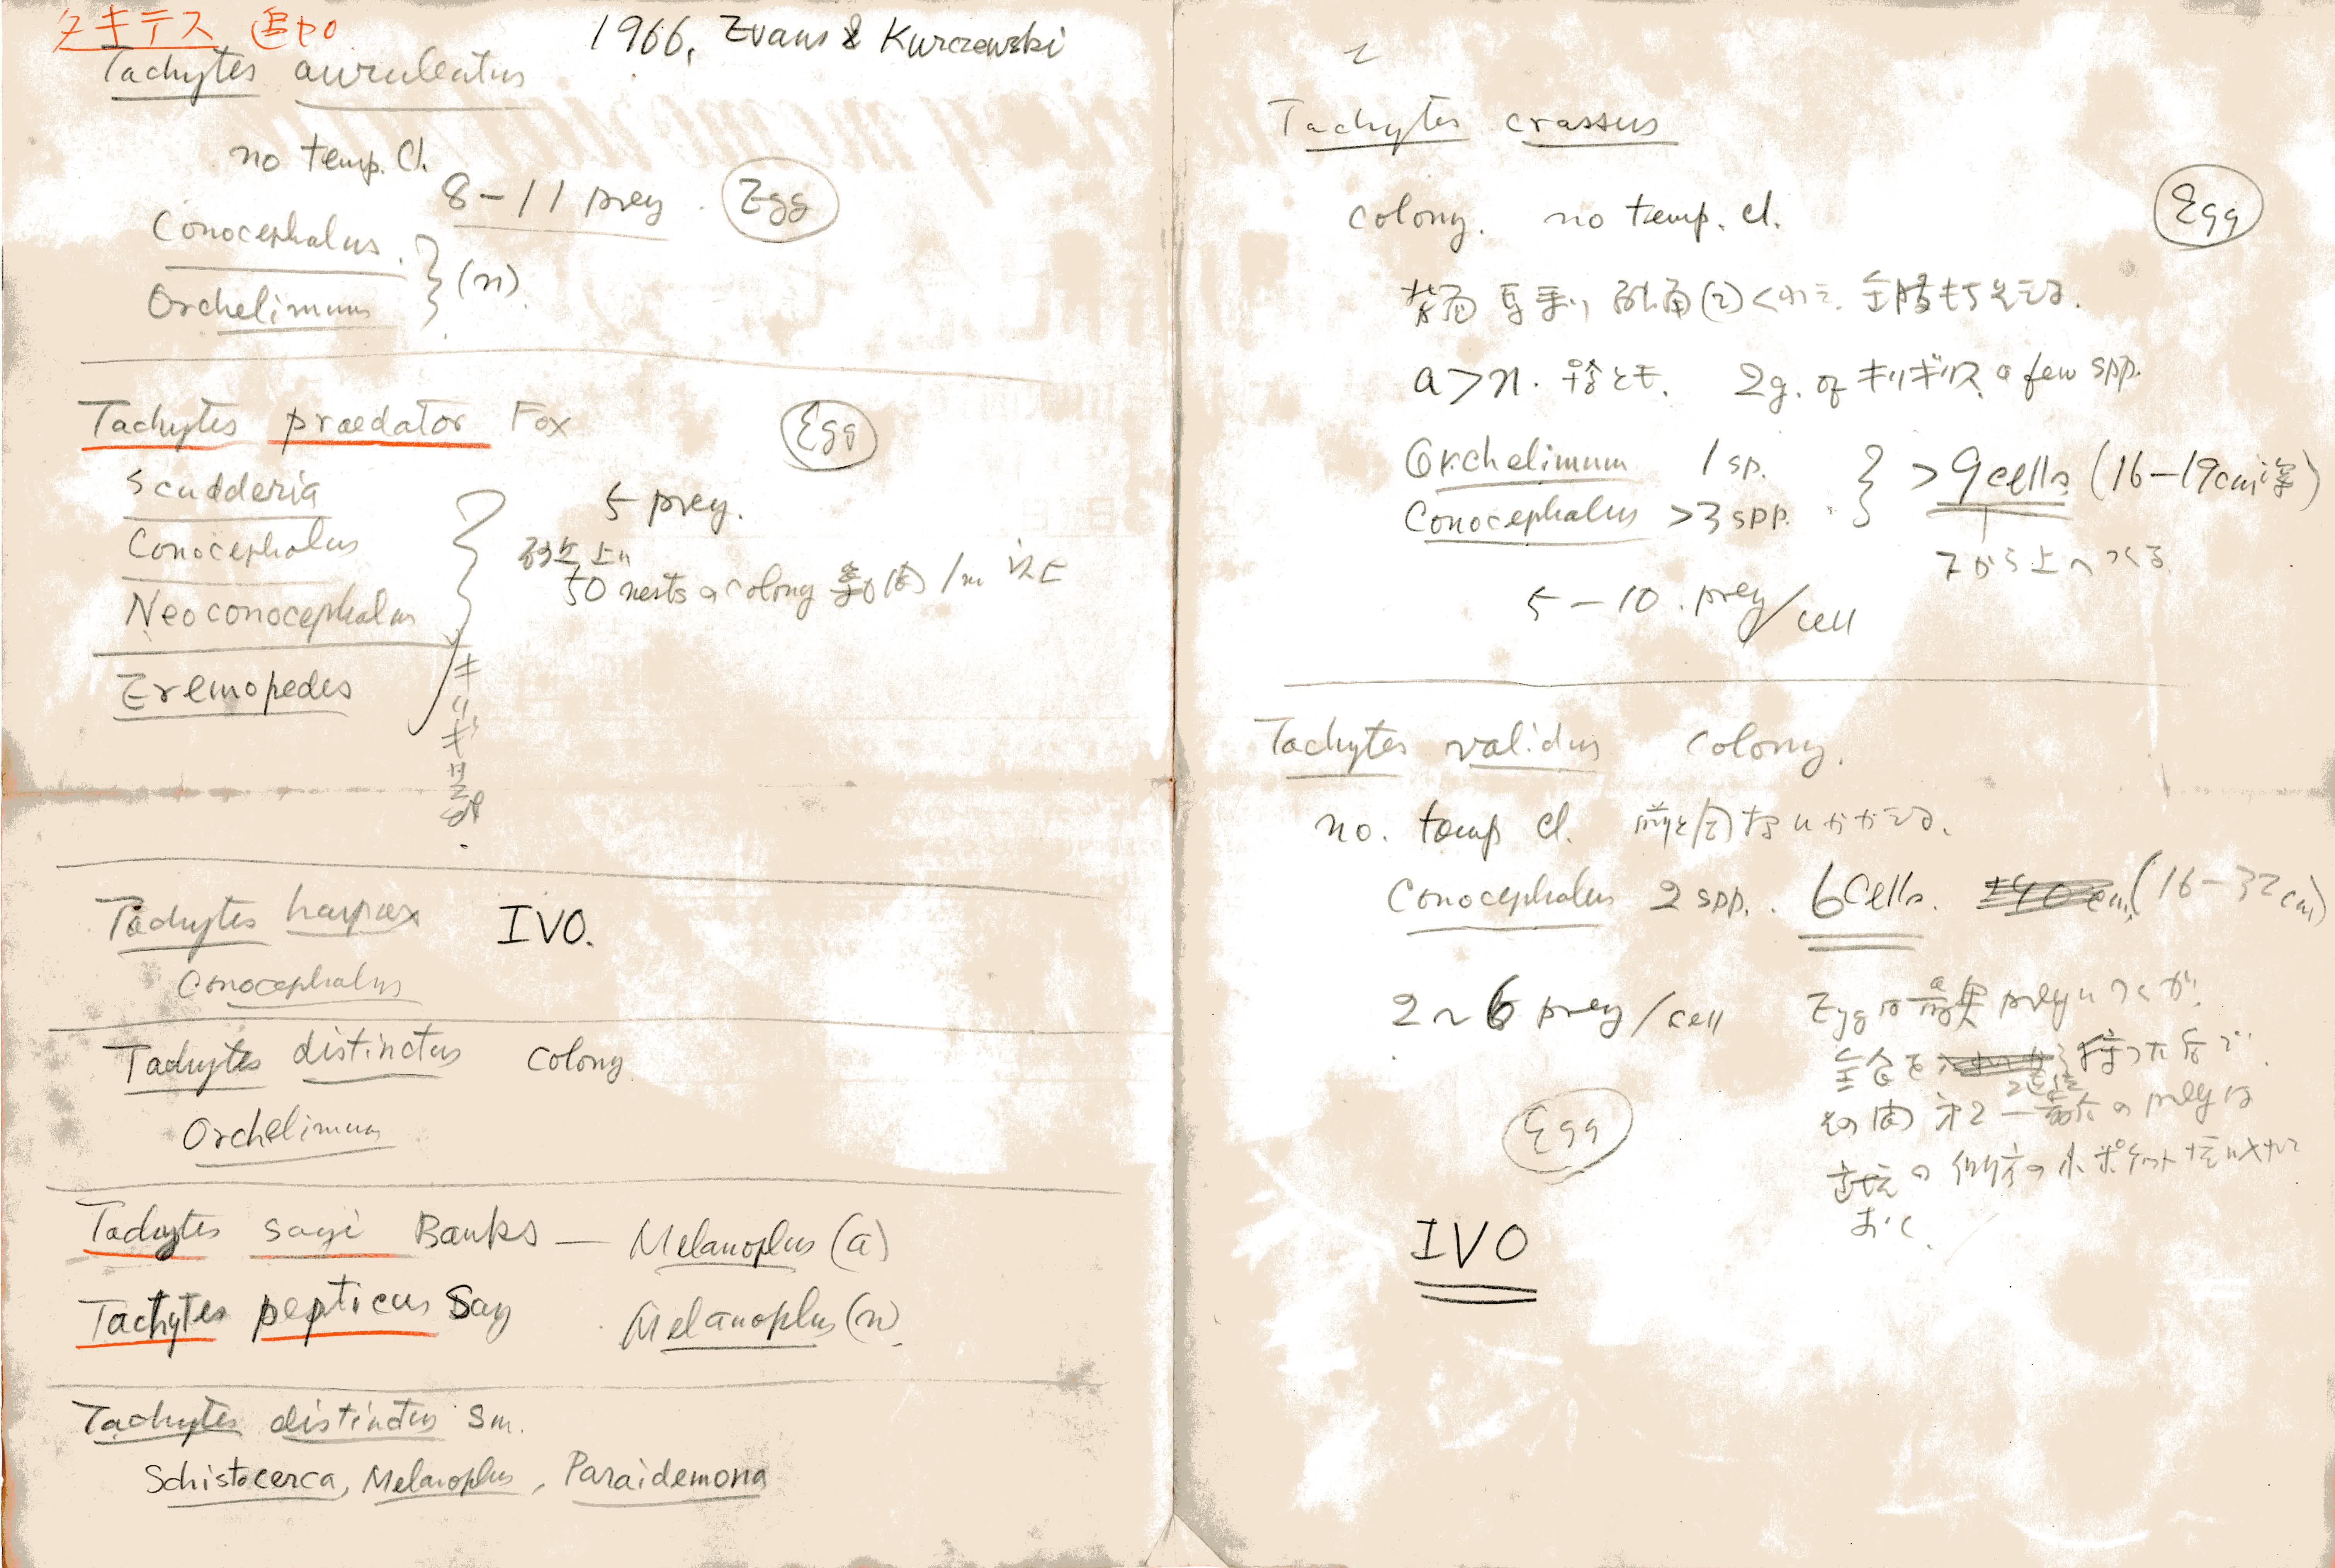 タキテス 追加
1966, Evans & Kurczewski
Tachytes auruleatus
no temp. cl.
8-11 prey. Egg
Conocephalus.
Orchelimum
(n).
Tachytes praedator Fox Egg
Scudderia
Conocephalus
Neoconocephalus
Eremopedes
キリギリス
5 prey.
砂地上
50 nests a colony 巣間 1m 以上
Tachytes harpax IVO.
Conocephalus
Tachytes distinctus colony
Orchelimum
Tachytes sayi Banks — Melanoplus (a)
Tachytes pepticus Say Melanoplus (n).
Tachytes distinctus Sm.
Schistocerca, Melanoplus, Paraidemona
2
Tachytes crassus
colony. no temp. cl. Egg
背面 馬乗り 触角(2)くわえ. 全肢
a>n. ♀♂とも. 2g. of キリギリス a few spp.
Orchelimum 1 sp.
Conocephalus >3 spp.
>9 cells (16-19cm深)
下から上へつくる
5-10. prey/cell
Tachytes validus colony.
no. temp cl. 前と同
Conocephalus 2 spp.. 6 cells. (16-32cm)
2~6 prey/cell
Eggは a prey につくが.
その間 第2 — 最 の prey は
の 小ポケット
おく.
Egg
IVO